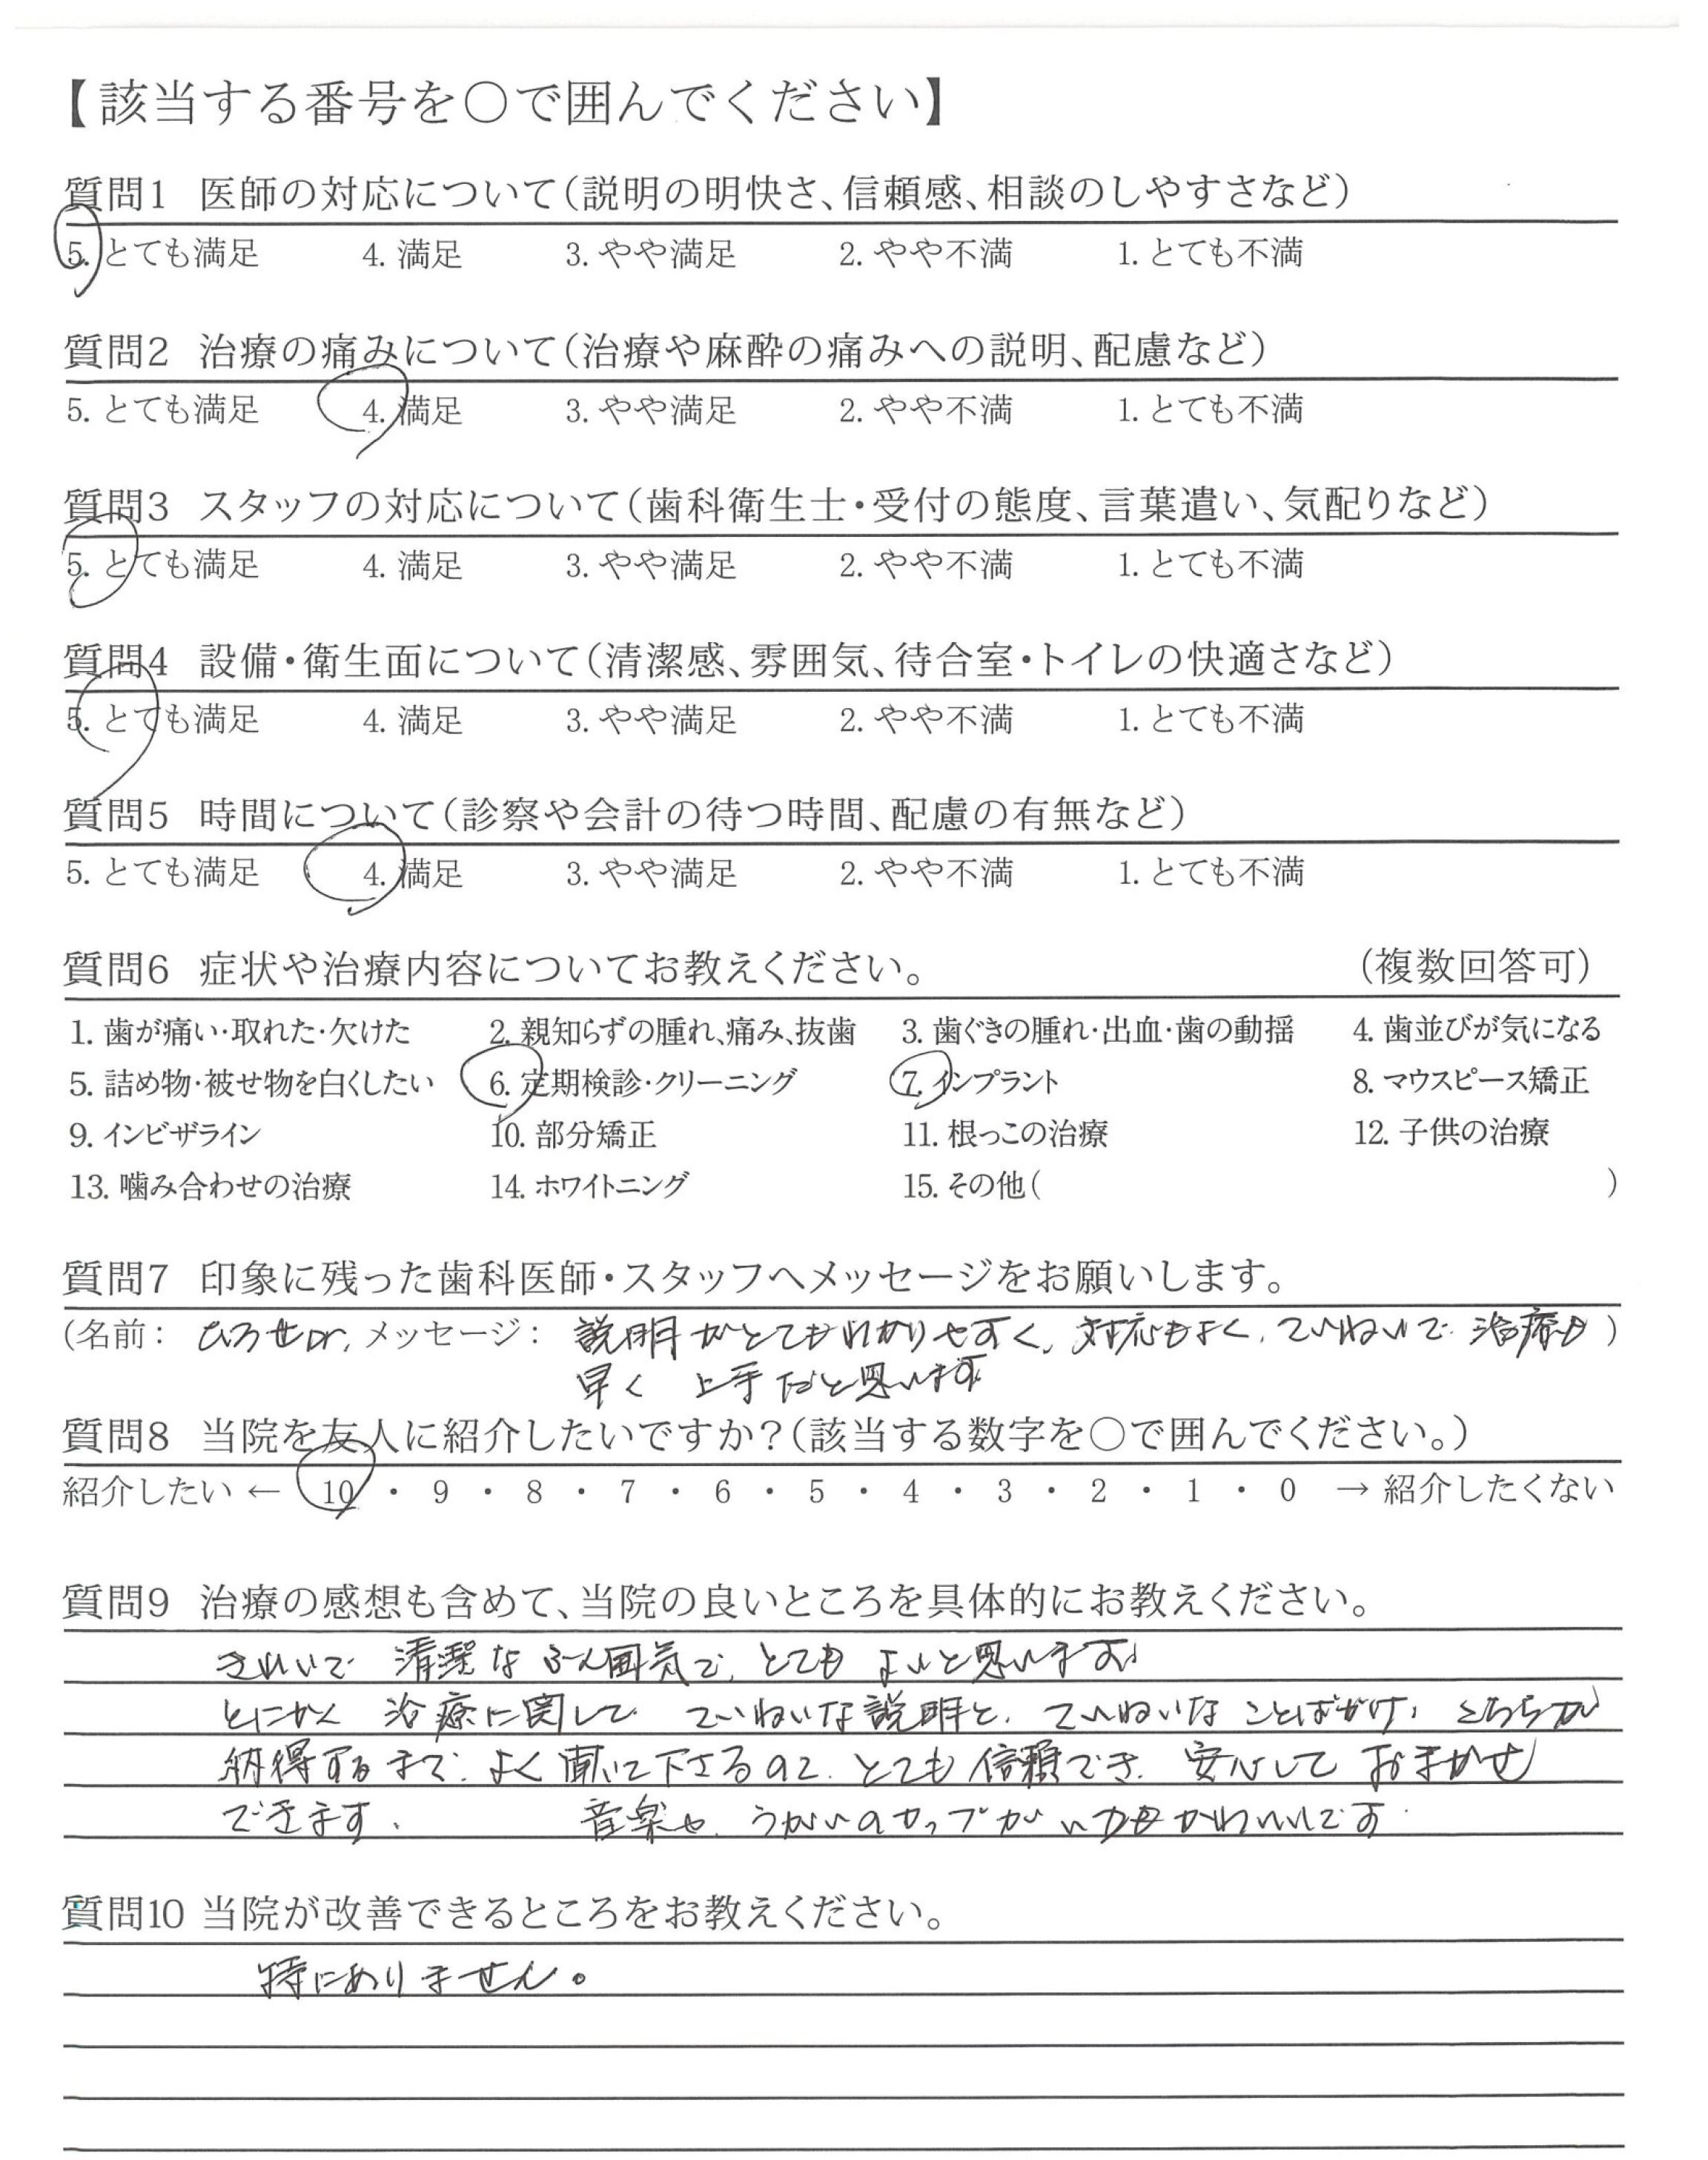 【該当する番号を○で囲んでください】
質問1 医師の対応について（説明の明快さ、信頼感、相談のしやすさなど）
5. とても満足 4. 満足 3. やや満足 2. やや不満 1. とても不満
質問2 治療の痛みについて（治療や麻酔の痛みへの説明、配慮など）
5. とても満足 4. 満足 3. やや満足 2. やや不満 1. とても不満
質問3 スタッフの対応について（歯科衛生士・受付の態度、言葉遣い、気配りなど）
5. とても満足 4. 満足 3. やや満足 2. やや不満 1. とても不満
質問4 設備・衛生面について（清潔感、雰囲気、待合室・トイレの快適さなど）
5. とても満足 4. 満足 3. やや満足 2. やや不満 1. とても不満
質問5 時間について（診察や会計の待つ時間、配慮の有無など）
5. とても満足 4. 満足 3. やや満足 2. やや不満 1. とても不満
質問6 症状や治療内容についてお教えください。 （複数回答可）
1. 歯が痛い・取れた・欠けた 2. 親知らずの腫れ、痛み、抜歯 3. 歯ぐきの腫れ・出血・歯の動揺 4. 歯並びが気になる
5. 詰め物・被せ物を白くしたい 6. 定期検診・クリーニング 7. インプラント 8. マウスピース矯正
9. インビザライン 10. 部分矯正 11. 根っこの治療 12. 子供の治療
13. 噛み合わせの治療 14. ホワイトニング 15. その他（ ）
質問7 印象に残った歯科医師・スタッフへメッセージをお願いします。
（名前： ひろせDr. メッセージ： 説明がとてもわかりやすく、対応もよく、ていねいで 治療も ）
早く 上手だと思います
質問8 当院を友人に紹介したいですか？（該当する数字を○で囲んでください。）
紹介したい ← 10 ・ 9 ・ 8 ・ 7 ・ 6 ・ 5 ・ 4 ・ 3 ・ 2 ・ 1 ・ 0 → 紹介したくない
質問9 治療の感想も含めて、当院の良いところを具体的にお教えください。
きれいで 清潔な ふん囲気で、とても よいと思います。
とにかく 治療に関して ていねいな説明と、ていねいな ことばがけ、こちらが
納得するまで よく 下さるので とても 信頼でき 安心して おまかせ
できます。 音楽や、うがいのカップが かわいいです
質問10 当院が改善できるところをお教えください。
特にありません。